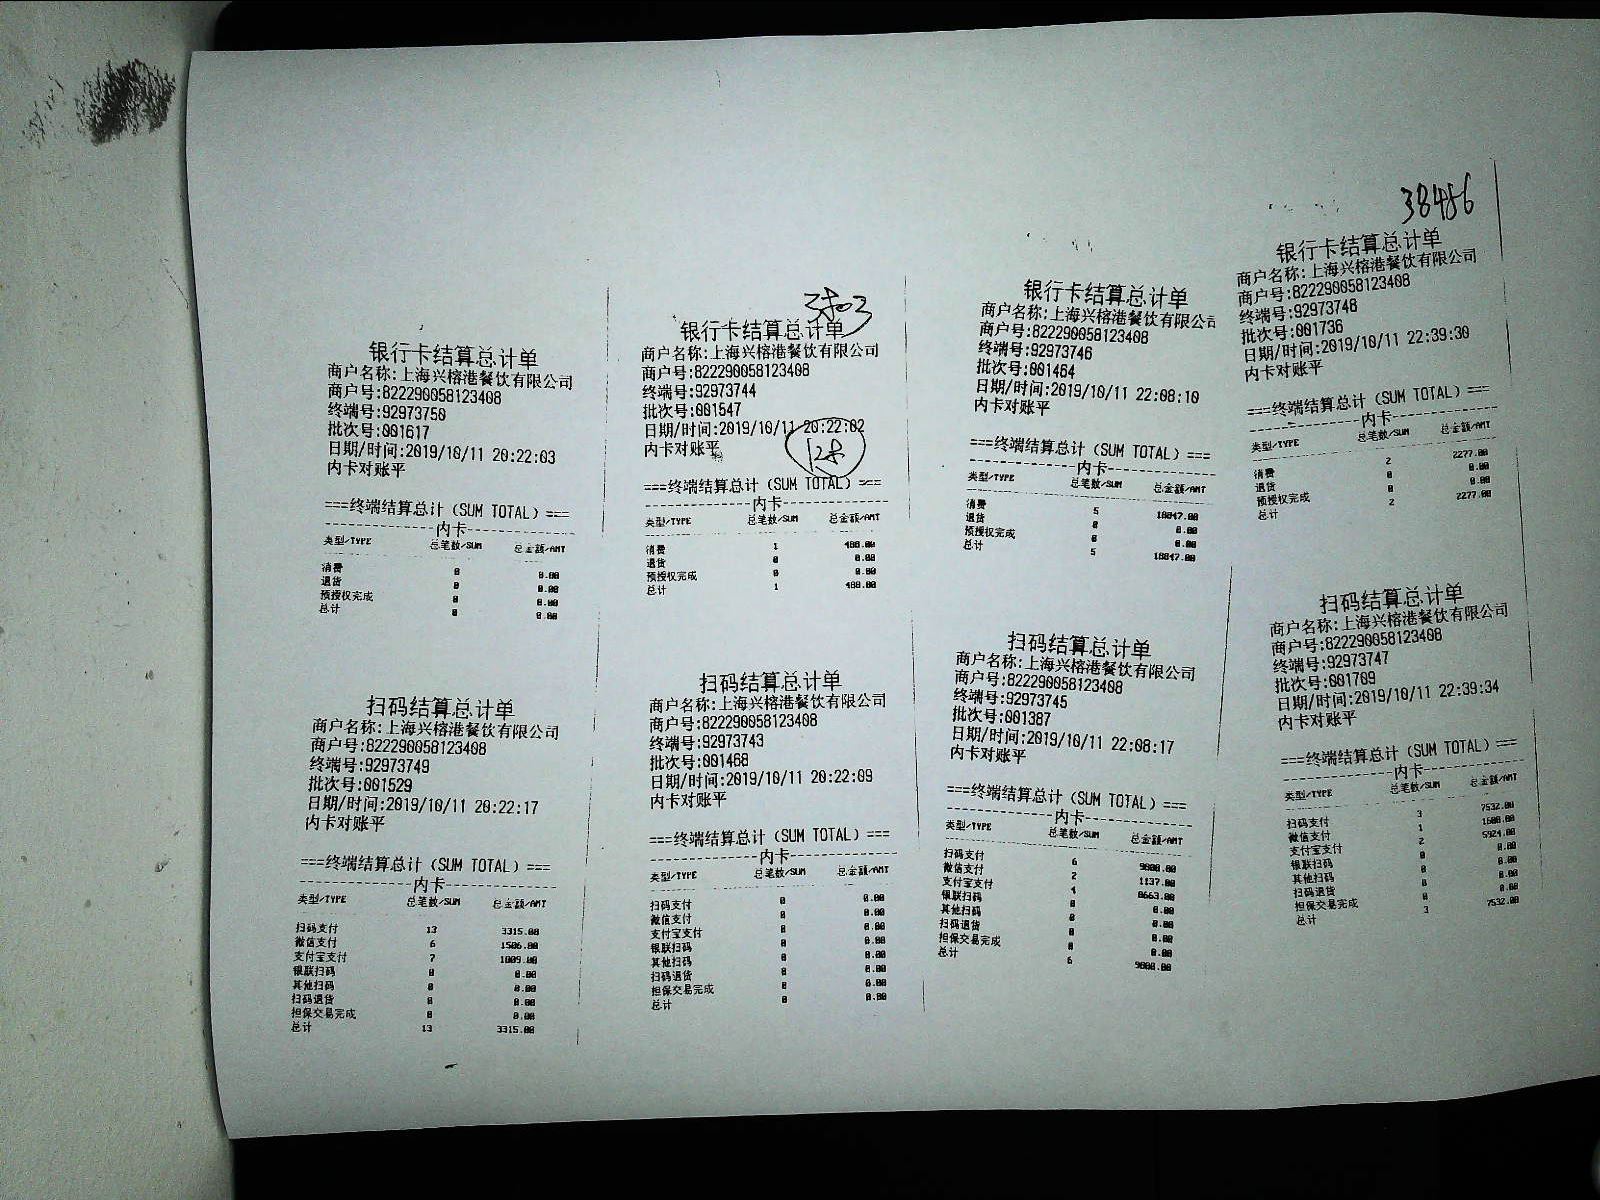 银行卡结算总计单
商户名称:上海兴榕港餐饮有限公司
商户号:822290058123408
终端号:92973750
批次号:001617
日期/时间:2019/10/11 20:22:03
内卡对账平
===终端结算总计(SUM TOTAL)===
内卡
类型/TYPE 总笔数/SUM 总金额/AMT
消费 0 0.00
退货 0 0.00
预授权完成 0 0.00
总计 0 0.00
扫码结算总计单
商户名称:上海兴榕港餐饮有限公司
商户号:822290058123408
终端号:92973749
批次号:001529
日期/时间:2019/10/11 20:22:17
内卡对账平
===终端结算总计(SUM TOTAL)===
内卡
类型/TYPE 总笔数/SUM 总金额/AMT
扫码支付 13 3315.00
微信支付 6 1506.00
支付宝支付 7 1809.00
银联扫码 0 0.00
其他扫码 0 0.00
扫码退货 0 0.00
担保交易完成 0 0.00
总计 13 3315.00
银行卡结算总计单
商户名称:上海兴榕港餐饮有限公司
商户号:822290058123408
终端号:92973744
批次号:001547
日期/时间:2019/10/11 20:22:02
内卡对账平
===终端结算总计(SUM TOTAL)===
内卡
类型/TYPE 总笔数/SUM 总金额/AMT
消费 1 488.00
退货 0 0.00
预授权完成 0 0.00
总计 1 488.00
扫码结算总计单
商户名称:上海兴榕港餐饮有限公司
商户号:822290058123408
终端号:92973743
批次号:001468
日期/时间:2019/10/11 20:22:09
内卡对账平
===终端结算总计(SUM TOTAL)===
内卡
类型/TYPE 总笔数/SUM 总金额/AMT
扫码支付 0 0.00
微信支付 0 0.00
支付宝支付 0 0.00
银联扫码 0 0.00
其他扫码 0 0.00
扫码退货 0 0.00
担保交易完成 0 0.00
总计 0 0.00
银行卡结算总计单
商户名称:上海兴榕港餐饮有限公司
商户号:822290058123408
终端号:92973746
批次号:001464
日期/时间:2019/10/11 22:08:10
内卡对账平
===终端结算总计(SUM TOTAL)===
内卡
类型/TYPE 总笔数/SUM 总金额/AMT
消费 5 18047.00
退货 0 0.00
预授权完成 0 0.00
总计 5 18047.00
扫码结算总计单
商户名称:上海兴榕港餐饮有限公司
商户号:822290058123408
终端号:92973745
批次号:001387
日期/时间:2019/10/11 22:08:17
内卡对账平
===终端结算总计(SUM TOTAL)===
内卡
类型/TYPE 总笔数/SUM 总金额/AMT
扫码支付 6 9800.00
微信支付 2 1137.00
支付宝支付 4 8663.00
银联扫码 0 0.00
其他扫码 0 0.00
扫码退货 0 0.00
担保交易完成 0 0.00
总计 6 9800.00
38486
银行卡结算总计单
商户名称:上海兴榕港餐饮有限公司
商户号:822290058123408
终端号:92973748
批次号:001736
日期/时间:2019/10/11 22:39:30
内卡对账平
===终端结算总计(SUM TOTAL)===
内卡
类型/TYPE 总笔数/SUM 总金额/AMT
消费 2 2277.00
退货 0 0.00
预授权完成 0 0.00
总计 2 2277.00
扫码结算总计单
商户名称:上海兴榕港餐饮有限公司
商户号:822290058123408
终端号:92973747
批次号:001709
日期/时间:2019/10/11 22:39:34
内卡对账平
===终端结算总计(SUM TOTAL)===
内卡
类型/TYPE 总笔数/SUM 总金额/AMT
扫码支付 3 7532.00
微信支付 1 1608.00
支付宝支付 2 5924.00
银联扫码 0 0.00
其他扫码 0 0.00
扫码退货 0 0.00
担保交易完成 0 0.00
总计 3 7532.00